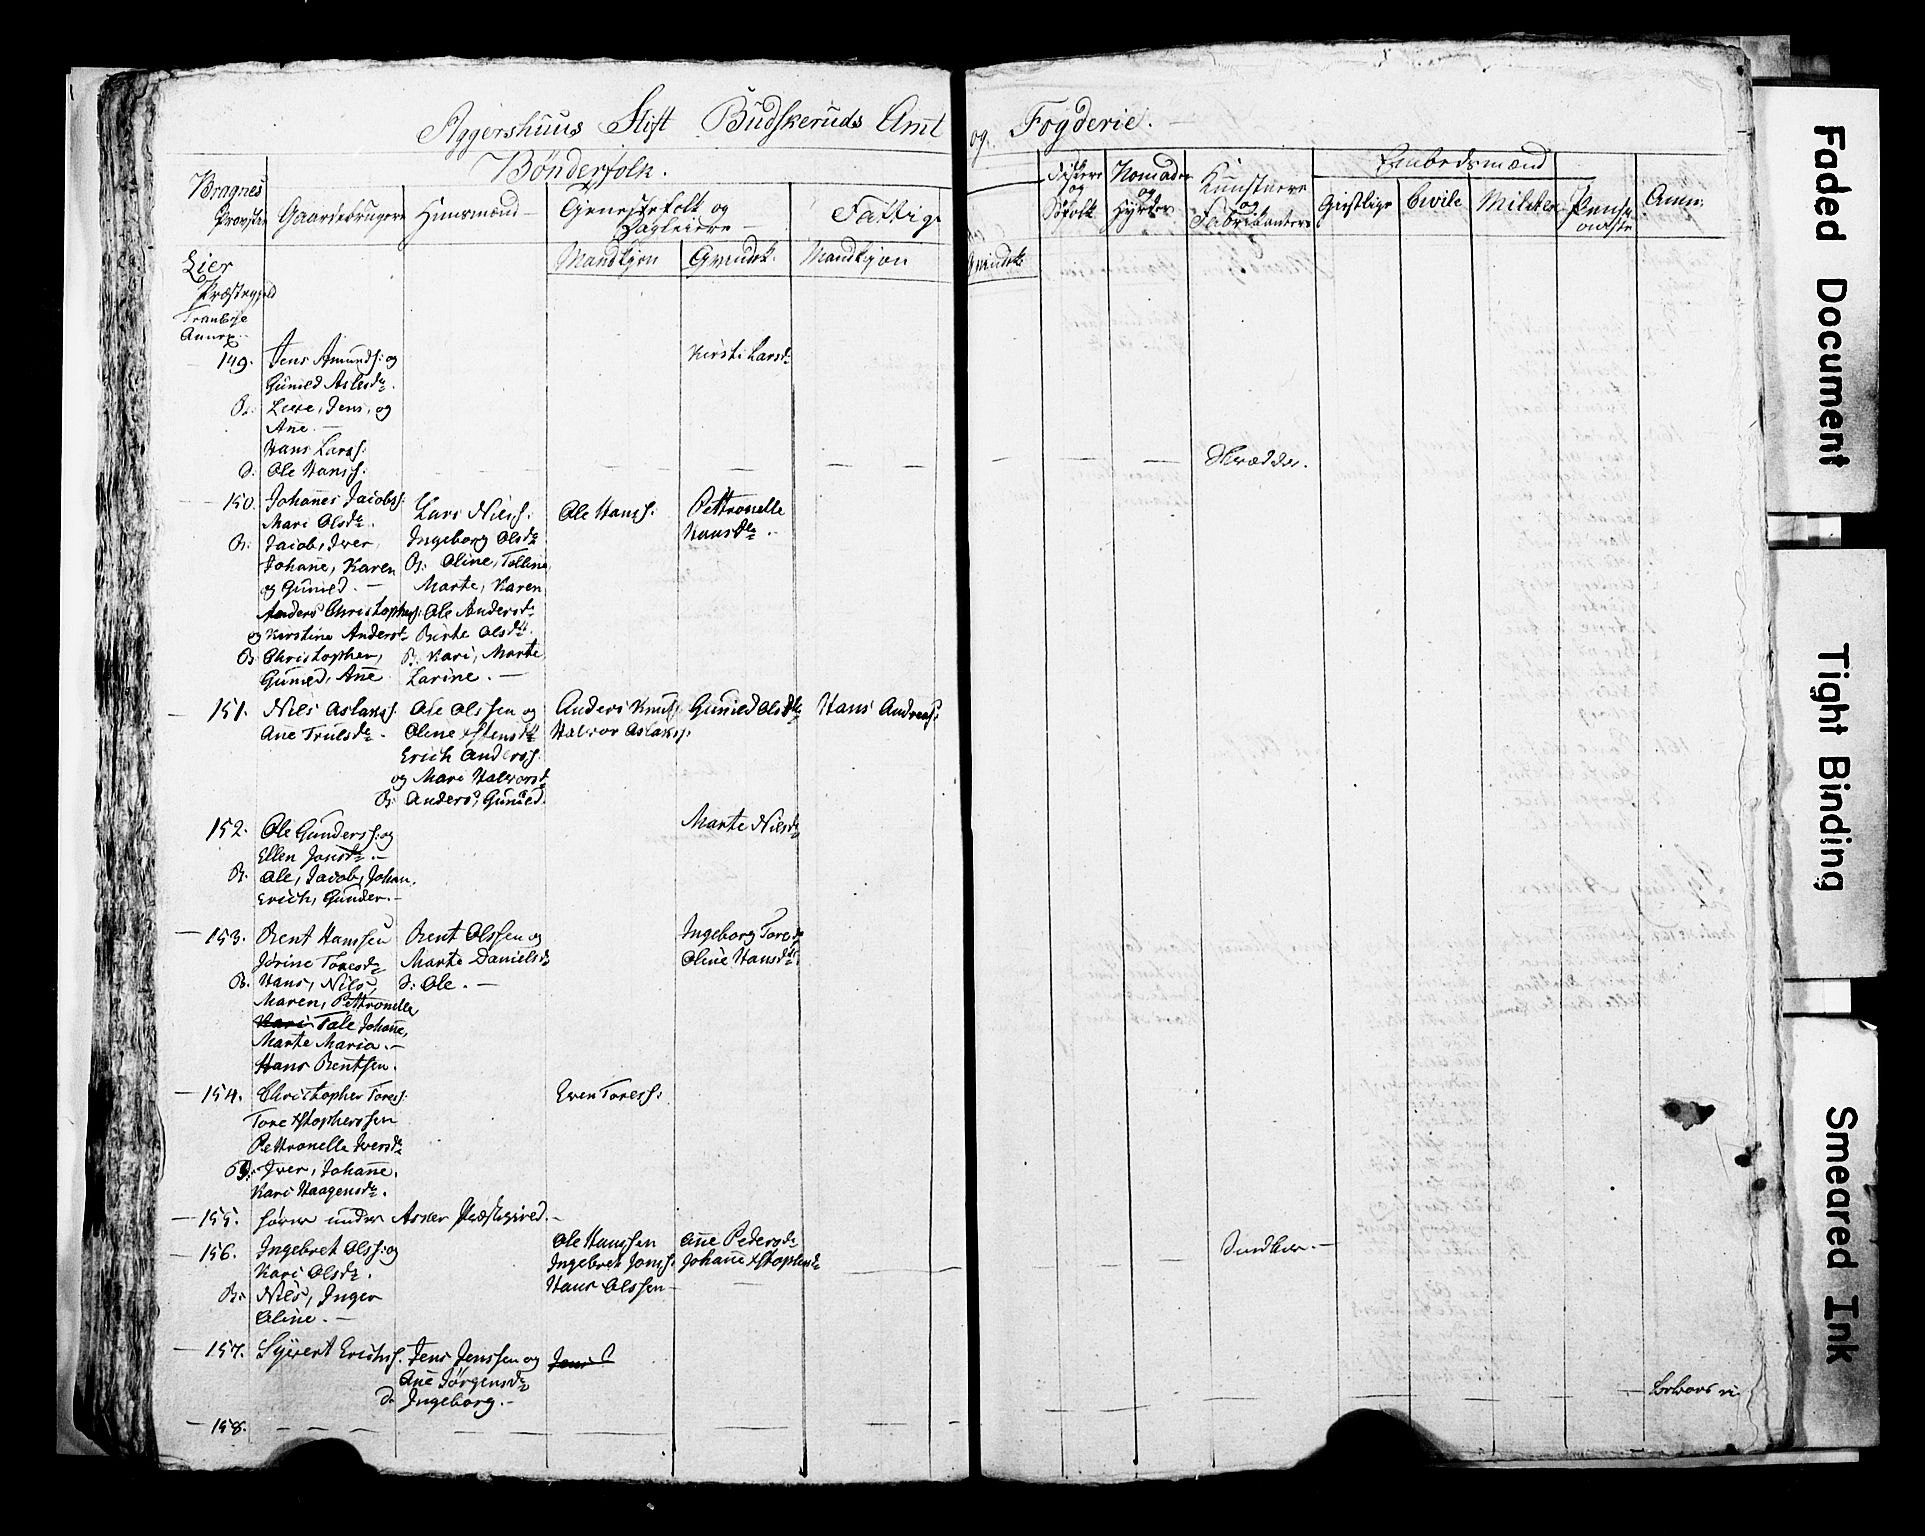 Aggershuus Stift Budskeruds Amt og Fogderie.
Bønderfolk.
Bragnes
Provstie
Gaardebrugere
Huusmænd
Tjenestefolk og
Dagleiere
Fattige
Fiskere
og
Nomader
og
Hyrder
Kunstnere
og
Fabrikanter
Embedsmænd
Geistlige
Civile
Militær
Anm:
Mandkjøn
Qvindek:
Mandkjøn
Qvindek
Lier
Præstegjeld
Tranbye
Annex.
149. Jens Amunds: og
Gunild Aslesdr.
B: Live, Jens, og
Ane.
Hans Larss:
D: Ole Hanss:
Kirsti Larsd
150. Johanes Jacobs:
Mari Olsdr.
B: Jacob, Iver,
Johane, Karen
og Gunild.
Anders Christophers:
og Kirstine Andersd
B: Christopher,
Gunild, Ane
Lars Nielss:
Ingeborg Olsdr
B: Oline, Tolline
Marte, Karen
Ole Anders
Birte Olsdtr.
B: Kari, Marte
Larine.
Ole Hanss:
Pettronelle
Hansdtr.
151. Nils Aslaks:
Ane Trulsdr.
Ole Olssen og
Oline
Erich Anderss:
og Mari Halvorsd
B: Anders, Gunild.
Anders Knuts
Halvor Aslaks:
Gunild Olsdtr
Hans Andreas:
152. Ole Gunderss: og
Ellen Jonsdr.
B. Ole, Jacob, Johan,
Erich, Gunder.
Marte Nilsd
153. Bent Hanssen
Jørine Toresdr
B. Hans, Nils,
Maren, Pettronelle
Kari Tale Johane,
Marte Maria.
Hans Bentsen.
Bent Olssen og
Marte Danielsd
D: Ole.
Ingeborg Tored
Oline Hansdtr
154. Christopher Toress:
Tore Xstopherssen
Pettronelle Iversdr
B: Iver, Johane.
Kari Haagensdr.
Even Toress:
155. hører under Asker Præstegield.
156. Ingebret Olss: og
Kari Olsdr.
B: Nils, Inger
Oline.
Ole Hanssen
Ingebret Jonss:
Hans Olssen
Ane Pedersdr
Johane Xstophersdr
157. Syvert Erichss.
Jens Jenssen og
Ane Jørgensdr
D: Ingeborg.
Jens
158.
Faded Document
Tight Binding
Smeared Ink